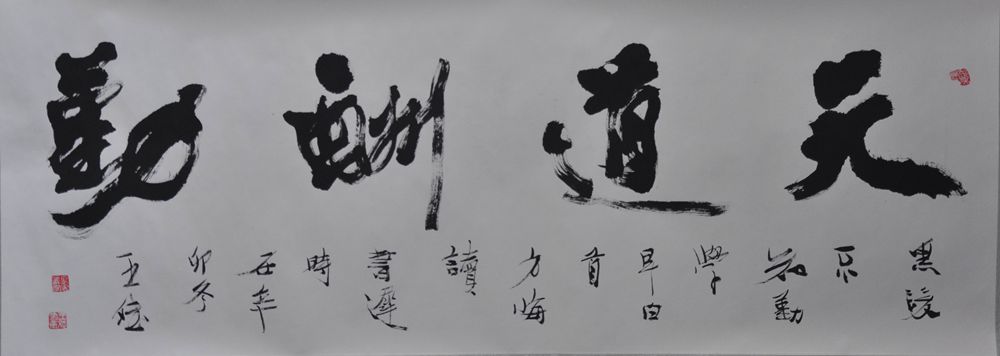 天道酬勤
黑發
不
知勤
學
早白
首
方悔
讀
書遲
時
在辛
卯冬
王